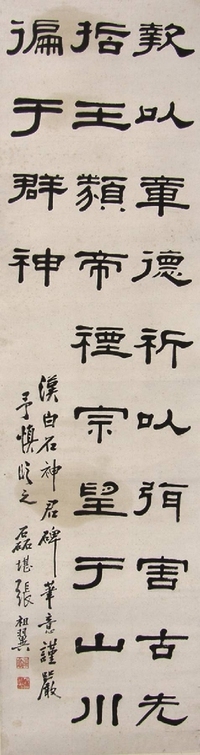 報以章德祈以弭害古先
哲王類帝禋宗望于山川
徧于群神
漢白石神君碑筆意謹嚴
予慎臨之磊堪張祖翼